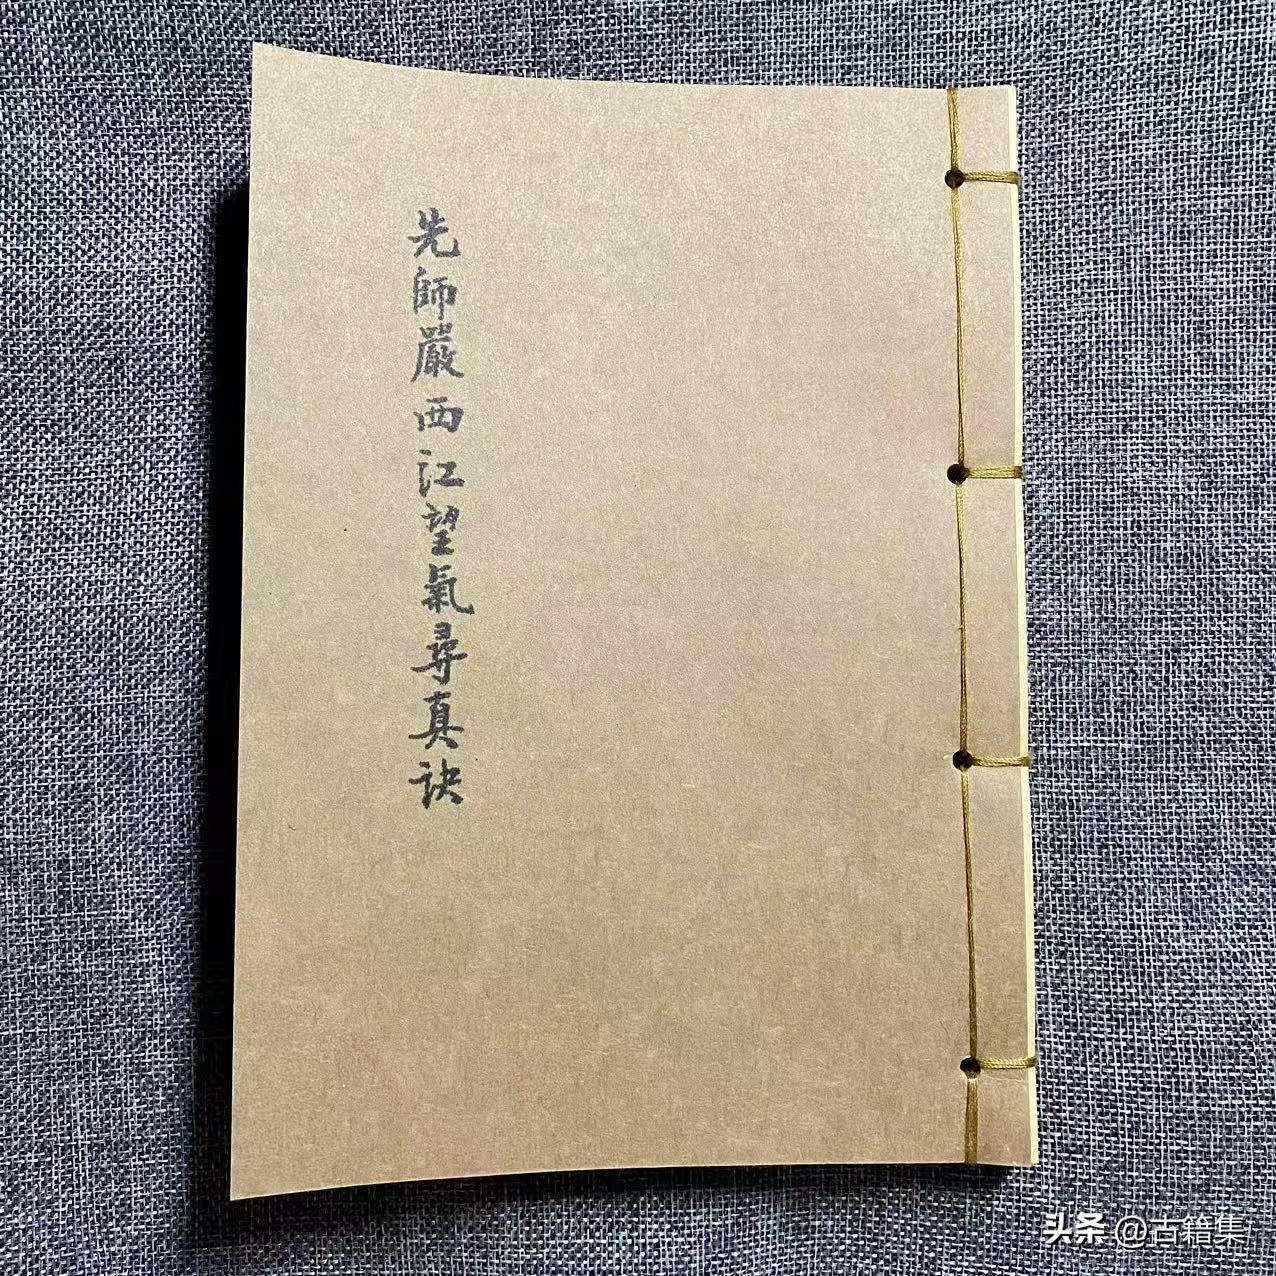 先師嚴西江望氣尋真訣
头条 @古籍集